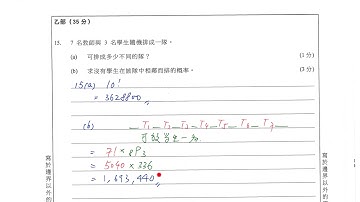 乙部 (35 分)
15. 7 名教師與 3 名學生隨機排成一隊。
(a) 可排成多少不同的隊？ (1 分)
(b) 求沒有學生在該隊中相鄰而排的概率。 (3 分)
15(a) 10!
= 3628800
(b) _T1_T2_T3_T4_T5_T6_T7_
= 7! × 8P3
= 5040 × 336
= 1,693,440
寫於邊界以外的
寫於邊界以外的